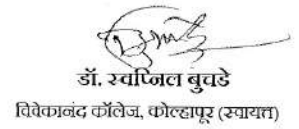 डॉ. स्वप्निल बुचडे
विवेकानंद कॉलेज, कोल्हापूर (स्वायत्त)